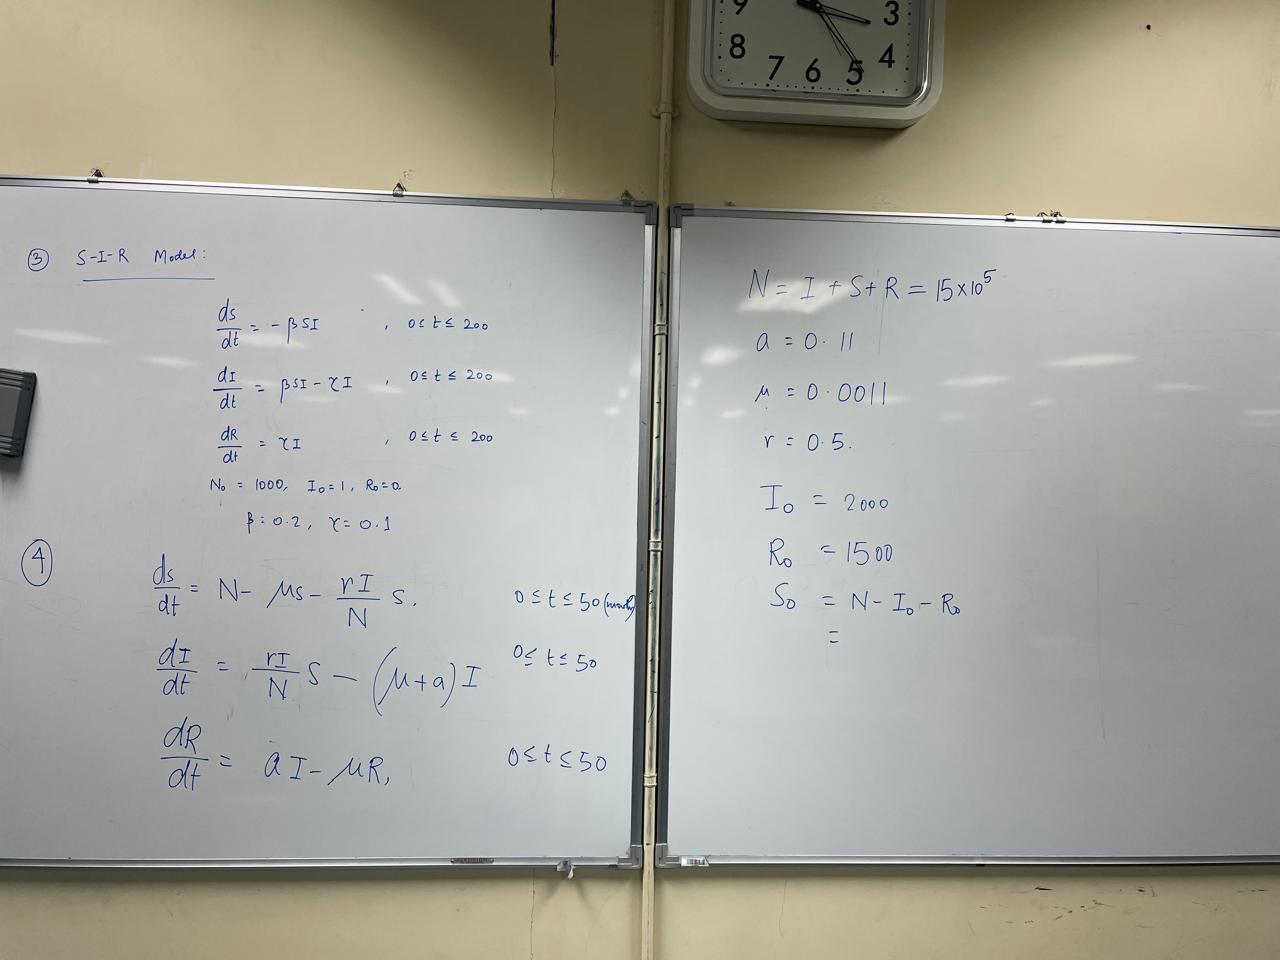 ③ S-I-R Model:
ds/dt = - βSI , 0 ≤ t ≤ 200
dI/dt = βSI - γI , 0 ≤ t ≤ 200
dR/dt = γI , 0 ≤ t ≤ 200
N₀ = 1000, I₀ = 1, R₀ = 0
β = 0.2, γ = 0.1
④
ds/dt = N - μs - rI/N s. 0 ≤ t ≤ 50
dI/dt = rI/N S - (μ+a) I 0 ≤ t ≤ 50
dR/dt = a I - μR, 0 ≤ t ≤ 50
N = I + S + R = 15×10⁵
a = 0.11
μ = 0.0011
r = 0.5.
I₀ = 2000
R₀ = 1500
S₀ = N - I₀ - R₀
=
9 3
8 4
7 6 5